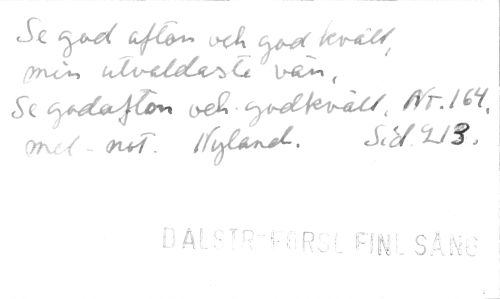 Se god afton och god kväll,
min utvaldaste vän,
Se godafton och godkväll, Nr. 164,
mel-not. Nyland. Sid. 213.
DALSTR-FORSL FINL SÅNG